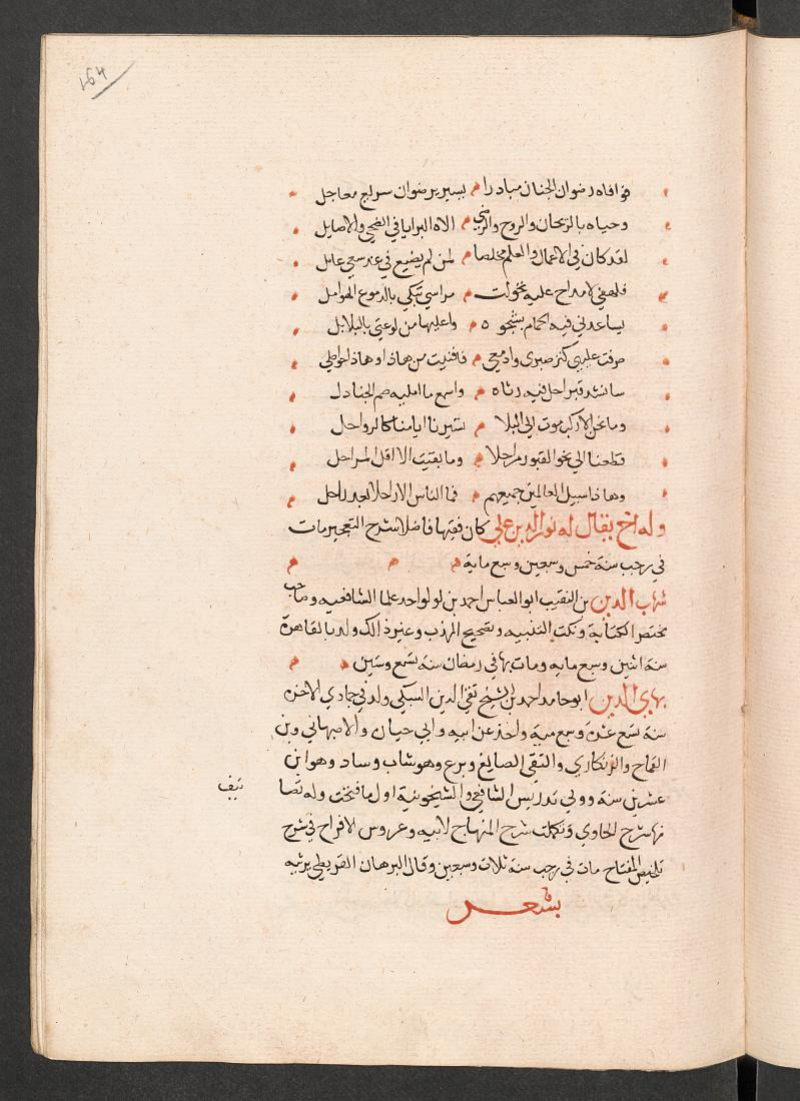 164
فوافاه رضوان الجنان مبادرا م بسير برضوان سريع معاجل
وحياه بالريحان والروح والرضي م الاه البرايا في الضحي والاصايل
لقد كان في الاعمال والعلم مخلصا م لمن لم يضيع في غد سعي عامل
فلهفي لامداح عليه تحولت م مراسي تبكي بالدموع الهوامل
يساعدني فيه الحمام بشجوه واغلبها من لوعتي بالبلابل
صرفت عليه كنز صبري وادمعي م فافنيت من هاذا وهاذا حواصلي
سانشد قبرا حل فيه رثاه م واسمع ما امليه صم الجنادل
وما نحن الا ركب موت الي البلا م تسيرنا ايامنا كالرواحل
قطعنا الي نحو القبور مراحلا م وما بقيت الا اقل المراحل
وهاذا سبيل العالمين جميعهم م فما الناس الا راحلا بعد راحل
وله اخ يقال له نور الدين علي كان فقيها فاضلا شرح التعجيز مات
في رجب سنة خمس وسبعين وسبع ماية م م م
شهاب الدين بن النقيب ابو العباس احمد بن لولو احد علما الشافعيه وصاحب
مختصر الكفاية ونكت التنبيه وتصحيح المهذب وغير ذالك ولد بالقاهرة
سنة اثنين وسبع مايه ومات بها في رمضان سنة تسع وستين م
بهي الدين ابو حامد احمد بن الشيخ تقي الدين السبكي ولد في جمادي الاخرة
سنة تسع عشرة وسبع مية واخذ عن ابيه وابي حيان والاصبهاني وبن
القماح والزنكاري والتقي الصايغ وبرع وهو شاب وساد وهو ابن
عشرين سنة وولي تدريس الشافعي والشيخونية اول ما فتحت وله تصا
نيف
نها شرح الحاوي وتكملت شرح المنهاج لابيه وعروس الافراح في شرح
تلخيص المفتاح مات في رجب سنة ثلاث وسبعين وقال البرهان القريطي يرثيه
بشعر